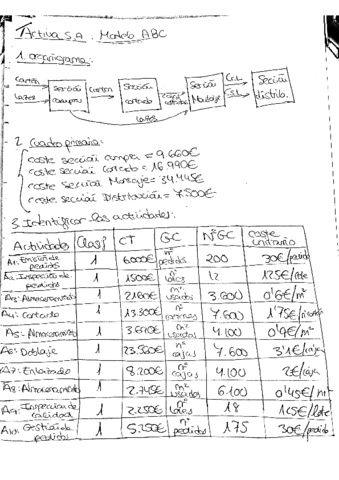 Activa S.A. Modelo ABC
1. Organigrama:
Cartón
Lazos
Sección compras
Cartón
Sección cortado
cajas cortadas
Sección Montaje
CcL
CsL
Sección distrib.
Lazos
2. Cuadro primario:
Coste sección compra = 9.660€
Coste sección Cortado = 16.990€
Coste sección Montaje = 34.445€
Coste sección Distribución = 7.500€
3. Identificar las actividades:
Actividades Clasif CT GC Nº GC Coste unitario
A1: Emisión de pedidos 1 6.000€ nº pedidos 200 30€/pedido
Inspección de pedidos 1 1500€ nº lotes 12 125€/lote
Almacenamiento 1 2.160€ m² usados 3.600 0'6€/m²
A4: Cortado 1 13.300€ nº 7.600 1'75€/
A5: Almacenamiento 1 3.690€ m² usados 4.100 0'9€/m²
A6: Doblaje 1 23.560€ nº cajas 7.600 3'1€/caja
A7: Enlazado 1 8.200€ nº cajas 4.100 2€/caja
A8: Almacenamiento 1 2.745€ m² usados 6.100 0'45€/m²
A9: Inspección de calidad 1 2.250€ nº lotes 18 125€/lote
A10: Gestión de pedidos 1 5.250€ nº pedidos 175 30€/pedido